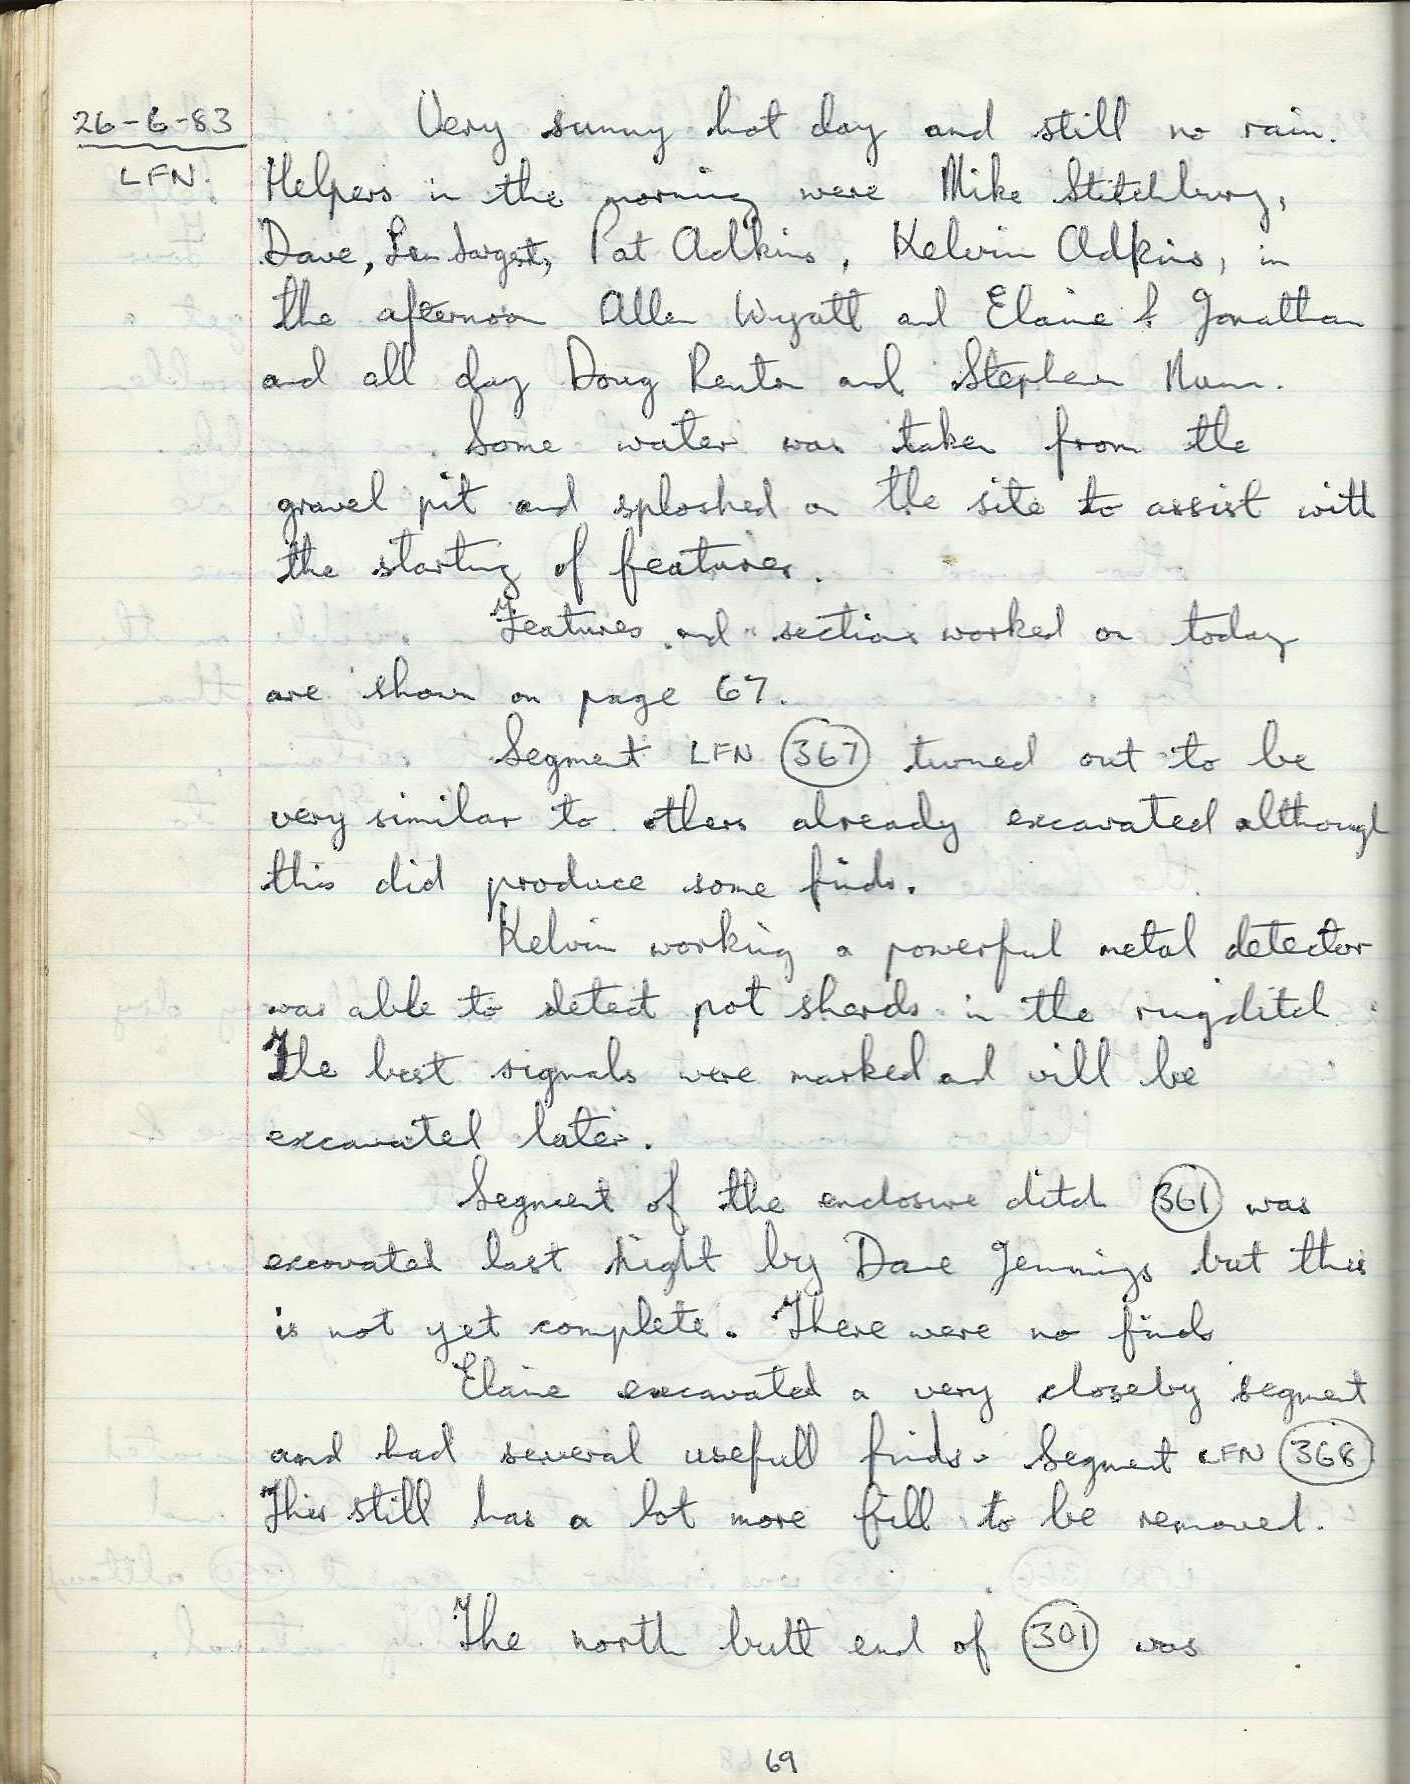 26-6-83
LFN.
Very sunny hot day and still no rain.
Helpers in the morning were Mike Stitchbury,
Dave, Len Sargent, Pat Adkins, Kelvin Adkins, in
the afternoon Allen Wyatt and Elaine & Jonathan
and all day Doug Renton and Stephen Nunn.
Some water was taken from the
gravel pit and sploshed on the site to assist with
the starting of features.
Features and sections worked on today
are shown on page 67.
Segment LFN 367 turned out to be
very similar to others already excavated although
this did produce some finds.
Kelvin working a powerful metal detector
was able to detect pot sherds in the ringditch
The best signals were marked and will be
excavated later.
Segment of the enclosure ditch 361 was
excavated last night by Dave Jennings but this
is not yet complete. There were no finds
Elaine excavated a very closeby segment
and had several usefull finds. Segment LFN 368
This still has a lot more fill to be removed.
The north butt end of 301 was
69